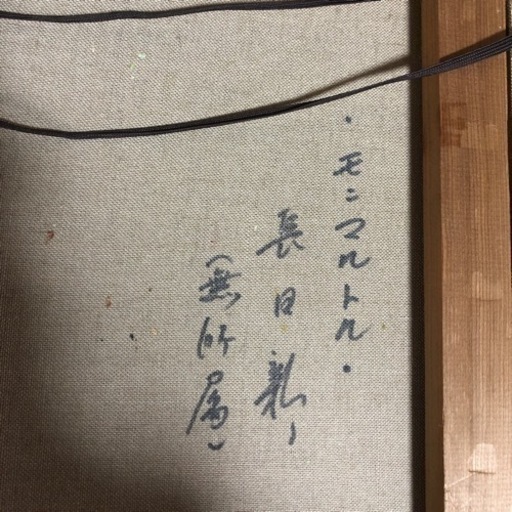 ・モンマルトル・
長日新一
（無所属）